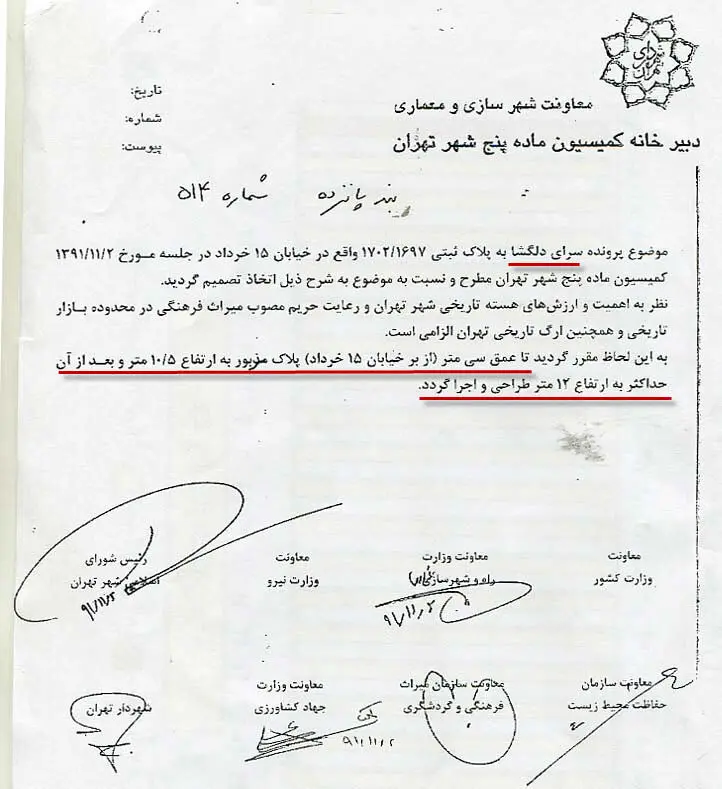 معاونت شهر سازی و معماری
دبیر خانه کمیسیون ماده پنج شهر تهران
تاریخ:
شماره:
پیوست:
بند پانزده شماره ۵۱۴
موضوع پرونده سرای دلگشا به پلاک ثبتی ۱۷۰۲/۱۶۹۷ واقع در خیابان ۱۵ خرداد در جلسه مورخ ۱۳۹۱/۱۱/۲
کمیسیون ماده پنج شهر تهران مطرح و نسبت به موضوع به شرح ذیل اتخاذ تصمیم گردید.
نظر به اهمیت و ارزش‌های هسته تاریخی شهر تهران و رعایت حریم مصوب میراث فرهنگی در محدوده بازار
تاریخی و همچنین ارگ تاریخی تهران الزامی است.
به این لحاظ مقرر گردید تا عمق سی متر (از بر خیابان ۱۵ خرداد) پلاک مزبور به ارتفاع ۱۰/۵ متر و بعد از آن
حداکثر به ارتفاع ۱۲ متر طراحی و اجرا گردد.
معاونت
وزارت کشور
معاونت وزارت
راه و شهرسازی
۹۱/۱۱/۲
معاونت
وزارت نیرو
رئیس شورای
اسلامی شهر تهران
۹۱/۱۱/۲
معاونت سازمان
حفاظت محیط زیست
معاونت سازمان میراث
فرهنگی و گردشگری
معاونت وزارت
جهاد کشاورزی
۹۱/۱۱/۲
شهردار تهران